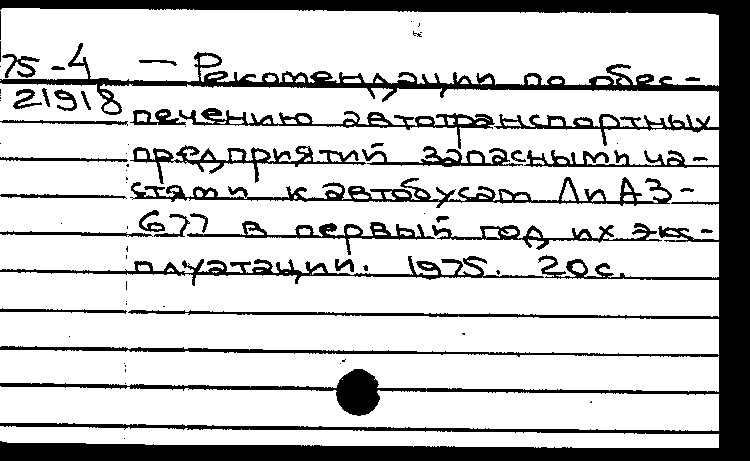 75-4 — Рекомендации по обес-
21918 печению автотранспортных
предприятий запасными ча-
стями к автобусам ЛиАЗ-
677 в первый год их экс-
плуатации. 1975. 20с.